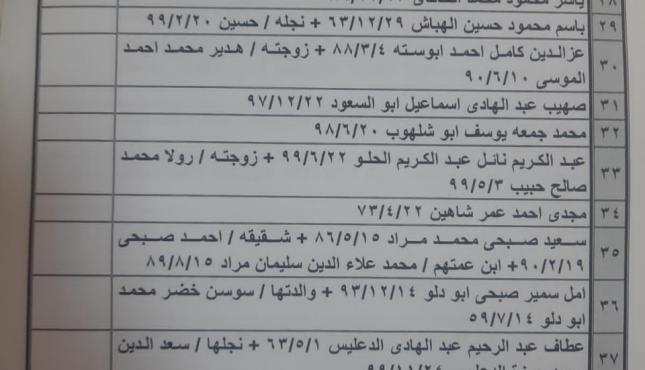 ٢٨ ياسر محمود محمد
٢٩ باسم محمود حسين الهباش ٦٣/١٢/٢٩ + نجله / حسين ٩٩/٢/٢٠
٣٠ عزالدين كامل احمد ابوسته ٨٨/٣/٤ + زوجته / هدير محمد احمد
الموسى ٩٠/٦/١٠
٣١ صهيب عبد الهادى اسماعيل ابو السعود ٩٧/١٢/٢٢
٣٢ محمد جمعه يوسف ابو شلهوب ٩٨/٦/٢٠
٣٣ عبد الكريم نائل عبد الكريم الحلو ٩٩/٦/٢٢ + زوجته / رولا محمد
صالح حبيب ٩٩/٥/٣
٣٤ مجدى احمد عمر شاهين ٧٣/٤/٢٢
٣٥ سعيد صبحى محمد مراد ٨٦/٥/١٥ + شقيقه / احمد صبحى
٩٠/٢/١٩+ ابن عمتهم / محمد علاء الدين سليمان مراد ٨٩/٨/١٥
٣٦ امل سمير صبحى ابو دلو ٩٣/١٢/١٤ + والدتها / سوسن خضر محمد
ابو دلو ٥٩/٧/١٤
٣٧ عطاف عبد الرحيم عبد الهادى الدعليس ٦٣/٥/١ + نجلها / سعد الدين